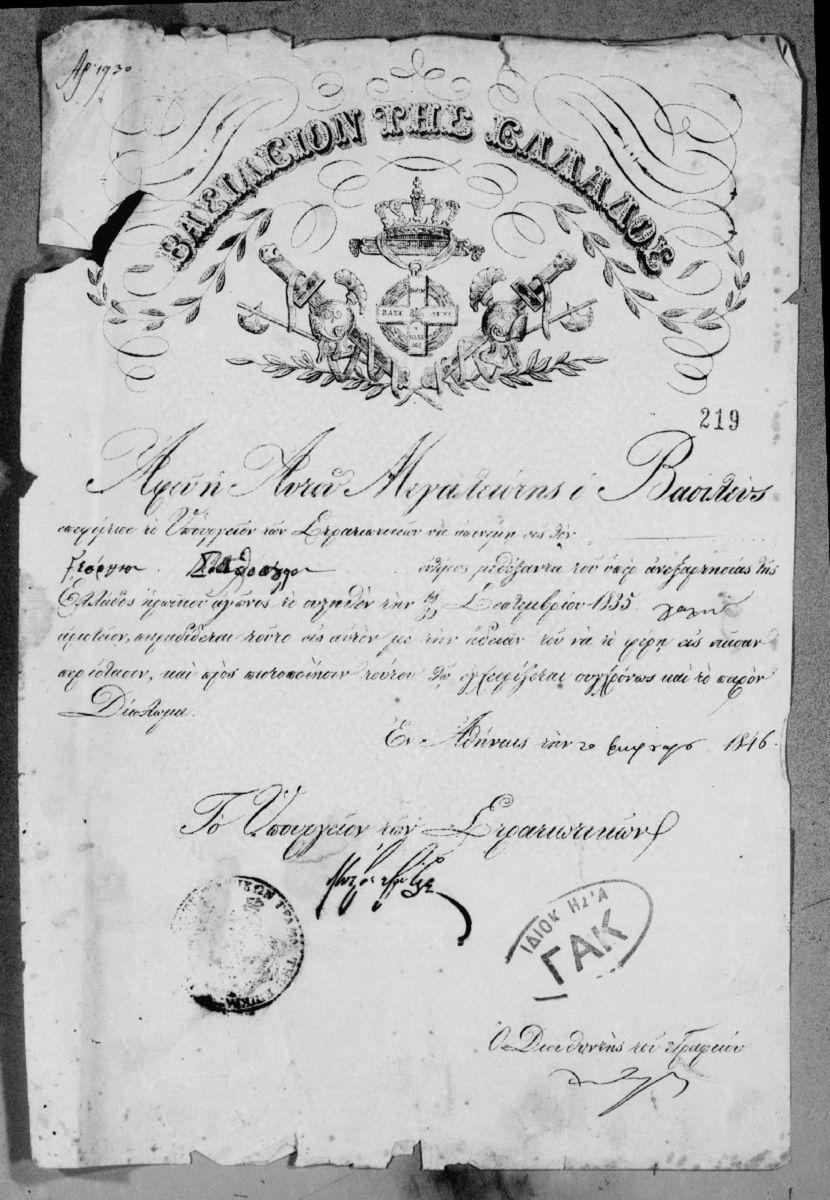 Αρ. 1930
ΒΑΣΙΛΕΙΟΝ ΤΗΣ ΕΛΛΑΔΟΣ
219
Ἀφοῦ ἡ Αὐτοῦ Μεγαλειότης ὁ Βασιλεὺς
ἐπεφόρτισε τὸ Ὑπουργεῖον τῶν Στρατιωτικῶν νὰ ἀπονέμῃ εἰς τὸν
Γεώργιον ἐντίμως μεθέξαντα τοῦ ὑπὲρ ἀνεξαρτησίας τῆς
Ἑλλάδος ἡρωϊκοῦ ἀγῶνος τὸ συστηθὲν τὴν Σεπτεμβρίου 1835
ἀριστεῖον, παραδίδεται τοῦτο εἰς αὐτὸν μὲ τὴν ἄδειαν τοῦ νὰ τὸ φέρῃ εἰς πᾶσαν
περίστασιν, καὶ πρὸς πιστοποίησιν τούτου τῷ ἐγχειρίζεται συγχρόνως καὶ τὸ παρὸν
Δίπλωμα.
Ἐν Ἀθήναις τὴν 20 1846.
Τὸ Ὑπουργεῖον τῶν Στρατιωτικῶν
ΙΔΙΟΚ ΗΣΙΑ
ΓΑΚ
Ὁ Διευθυντὴς τοῦ Γραφείου